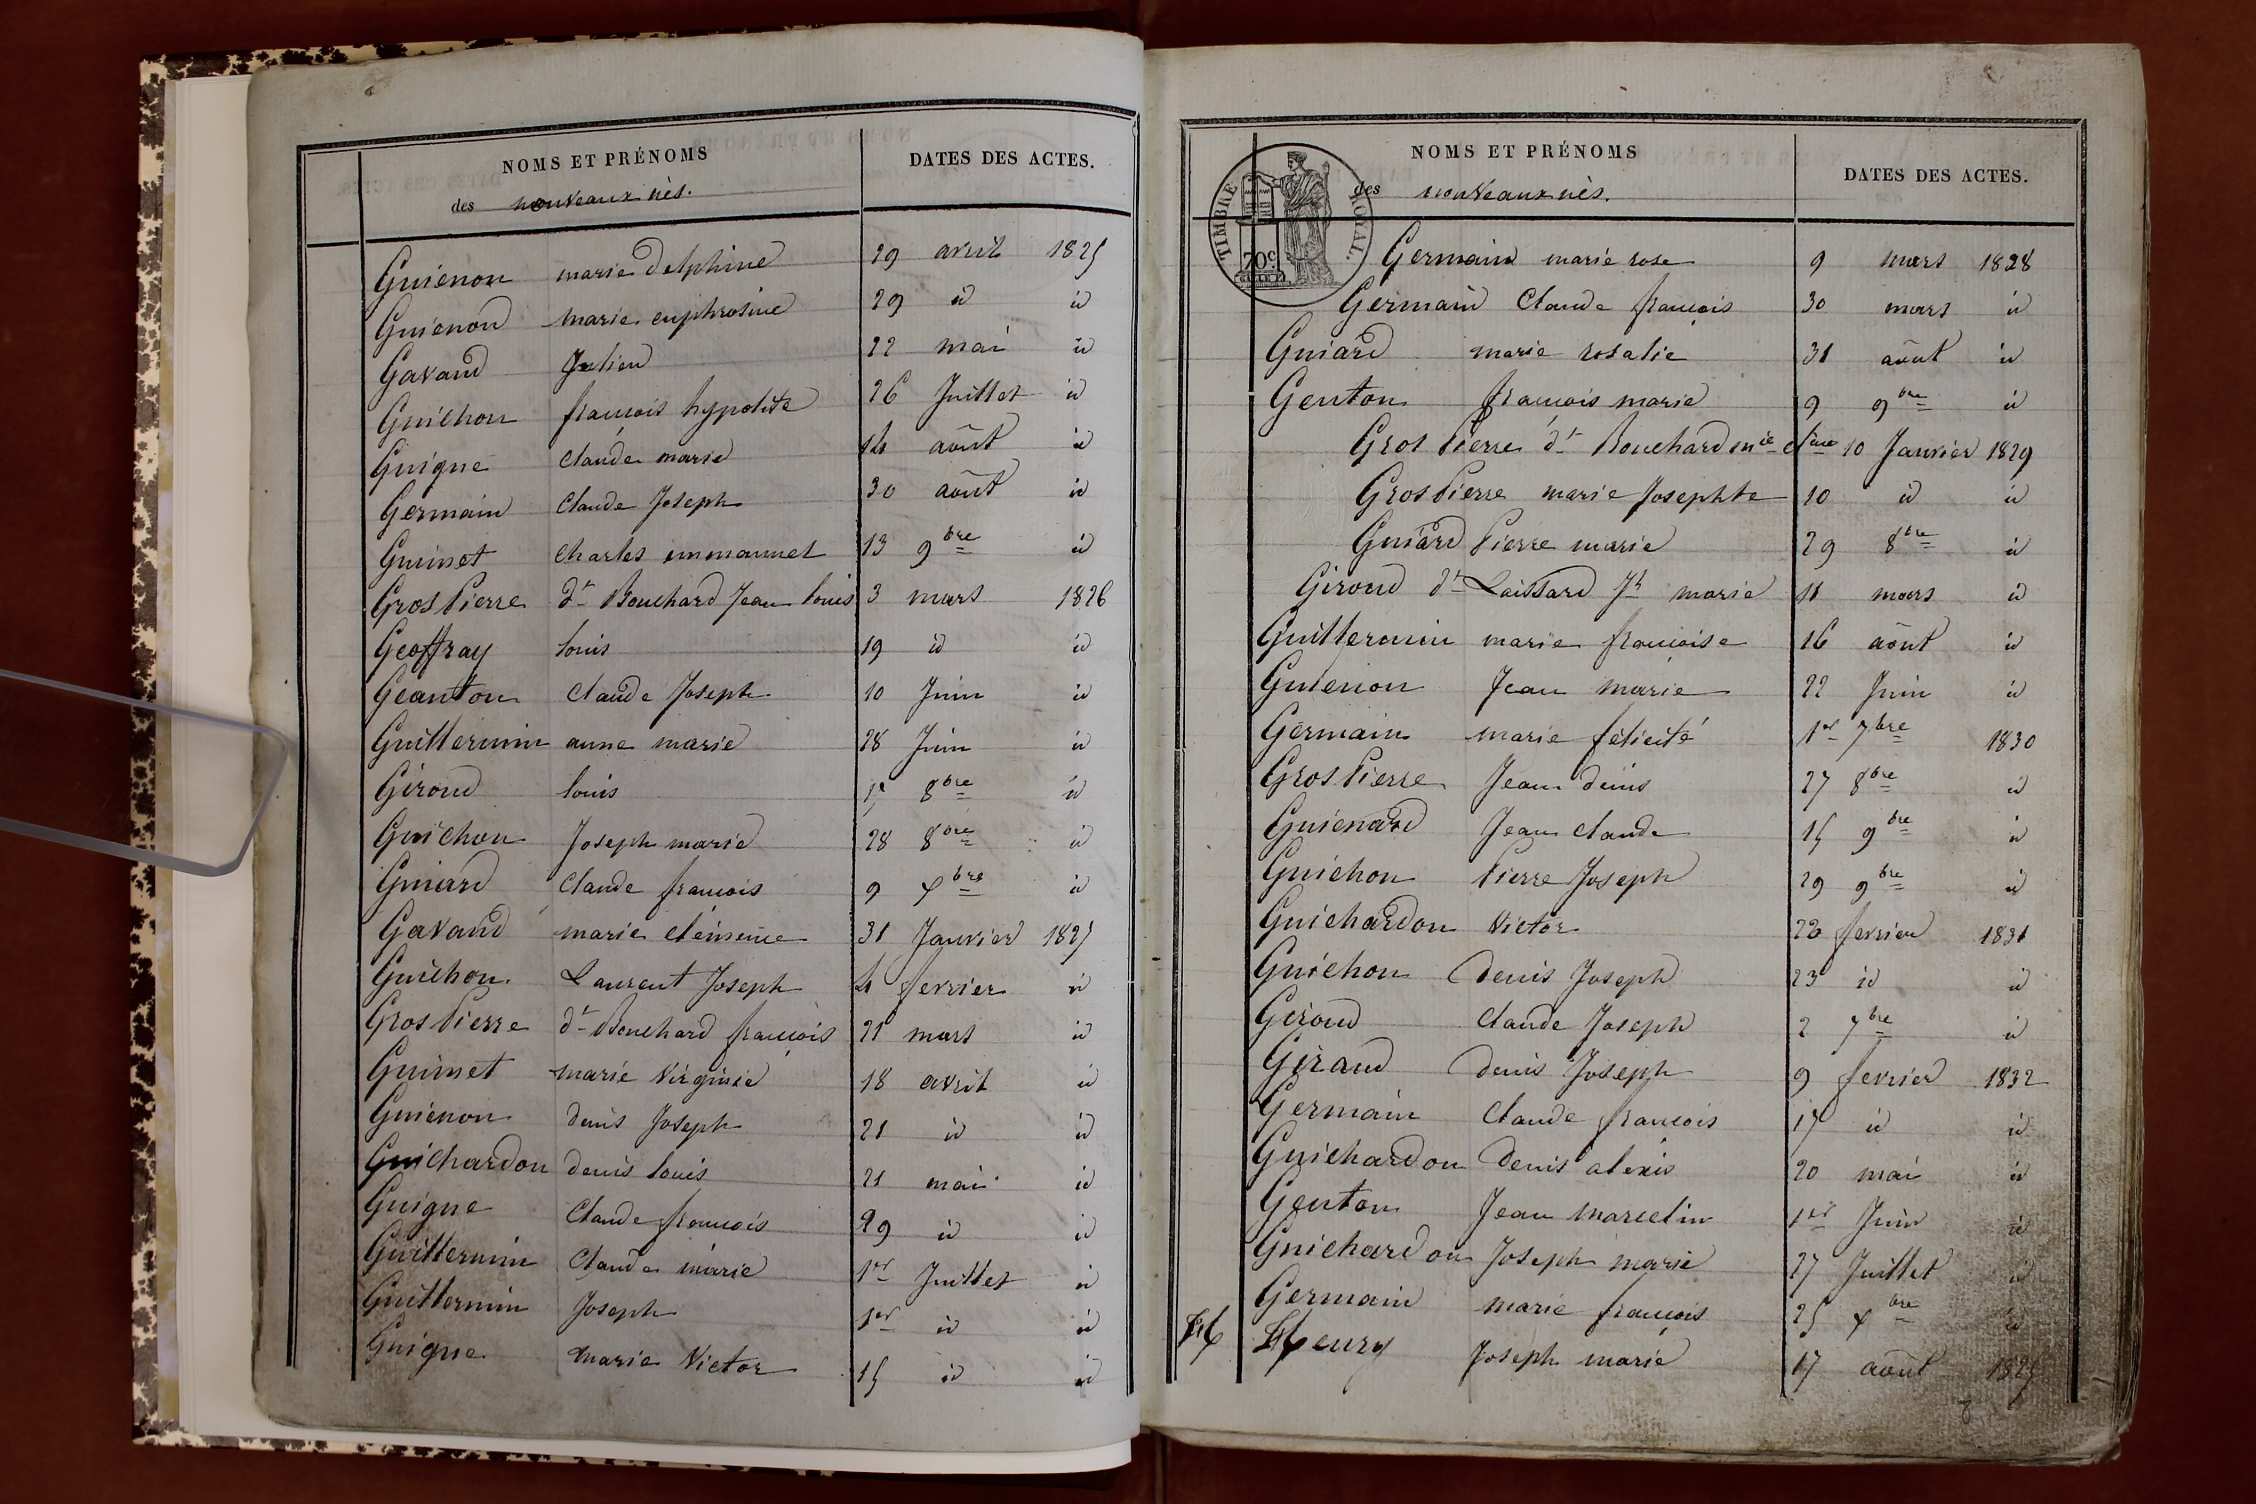 NOMS ET PRÉNOMS DATES DES ACTES.
des nouveaux nés.
Guienon marie delphine 29 avril 1825
Guienon marie euphrosine 29 id id
Gavand Julien 22 mai id
Guichon françois hypolite 26 Juillet id
Guigne claude marie 14 août id
Germain claude Joseph 30 août id
Guinet charles emmanuel 13 9bre id
Gros Pierre dt Bouchard Jean louis 3 mars 1826
Geoffray louis 19 id id
Geanton claude Joseph 10 Juin id
Guillermin anne marie 28 Juin id
Giroud louis 8bre id
Guichon Joseph marie 28 8bre id
Guiard claude françois 9 Xbre id
Gavand marie clémence 31 Janvier
Guichon Laurent Joseph 4 fevrier id
Gros Pierre dt Bouchard françois 21 mars id
Guinet marie virginie 18 avril id
Guienon denis Joseph 21 id id
Guichardon denis louis 21 mai id
Guigne claude françois 29 id id
Guillermin claude marie 1er Juillet id
Guillermin Joseph 1er id id
Guigne marie Victor 15 id id
TIMBRE ROYAL.
70c
NOMS ET PRÉNOMS DATES DES ACTES.
des nouveaux nés.
Germain marie rose 9 mars 1828
Germain Claude françois 30 mars id
Guiard marie rosalie 31 août id
Genton françois marie 9 9bre id
Gros Pierre dt Bouchard mie 10 Janvier 1829
Gros Pierre marie Josephte 10 id id
Guiard Pierre marie 29 8bre id
Giroud dt Laissard Jh marie 11 mars id
Guillermin marie françoise 16 août id
Guienon Jean marie 22 Juin id
Germain marie félicité 1er 7bre 1830
Gros Pierre Jean denis 27 8bre id
Guienard Jean claude 15 9bre id
Guichon Pierre Joseph 29 9bre id
Guichardon Victor fevrier 1831
Guichon denis Joseph 23 id id
Giroud claude Joseph 2 7bre id
Giraud denis Joseph 9 fevrier 1832
Germain claude françois 17 id id
Guichardon denis alexis 20 mai id
Genton Jean marcelin 1er Juin id
Guichardon Joseph marie 27 Juillet id
Germain marie françois 25 Xbre id
Joseph marie 17 août 1825